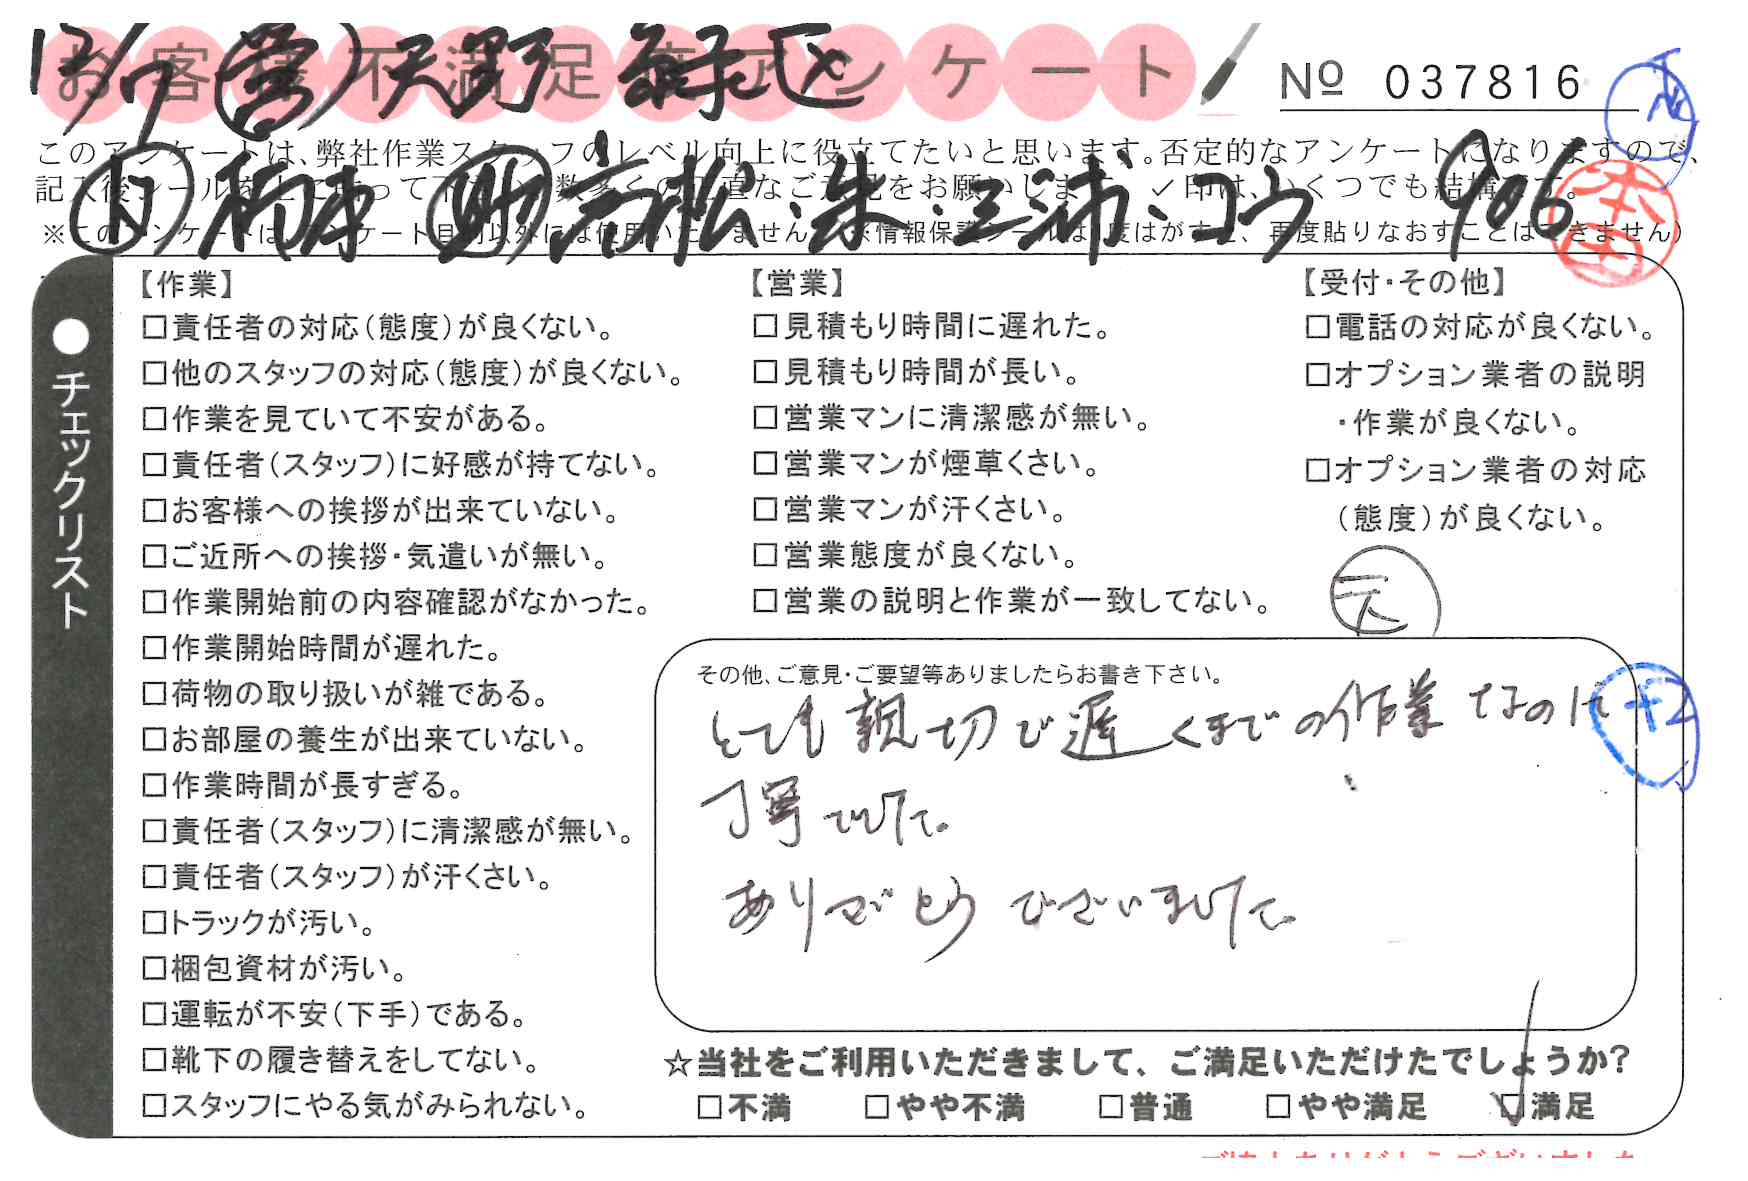 お客様不満足度アンケート
№ 037816
12/7 営 天野 緑区
このアンケートは、弊社作業スタッフのレベル向上に役立てたいと思います。否定的なアンケートになりますので、
高松・朱・三浦・コウ 906
本
●チェックリスト
【作業】
□責任者の対応(態度)が良くない。
□他のスタッフの対応(態度)が良くない。
□作業を見ていて不安がある。
□責任者(スタッフ)に好感が持てない。
□お客様への挨拶が出来ていない。
□ご近所への挨拶・気遣いが無い。
□作業開始前の内容確認がなかった。
□作業開始時間が遅れた。
□荷物の取り扱いが雑である。
□お部屋の養生が出来ていない。
□作業時間が長すぎる。
□責任者(スタッフ)に清潔感が無い。
□責任者(スタッフ)が汗くさい。
□トラックが汚い。
□梱包資材が汚い。
□運転が不安(下手)である。
□靴下の履き替えをしてない。
□スタッフにやる気がみられない。
【営業】
□見積もり時間に遅れた。
□見積もり時間が長い。
□営業マンに清潔感が無い。
□営業マンが煙草くさい。
□営業マンが汗くさい。
□営業態度が良くない。
□営業の説明と作業が一致してない。
【受付・その他】
□電話の対応が良くない。
□オプション業者の説明
・作業が良くない。
□オプション業者の対応
(態度)が良くない。
天
その他、ご意見・ご要望等ありましたらお書き下さい。
とても親切で遅くまでの作業なのに
丁寧でした。
ありがとうございました。
☆当社をご利用いただきまして、ご満足いただけたでしょうか?
□不満 □やや不満 □普通 □やや満足 ☑満足